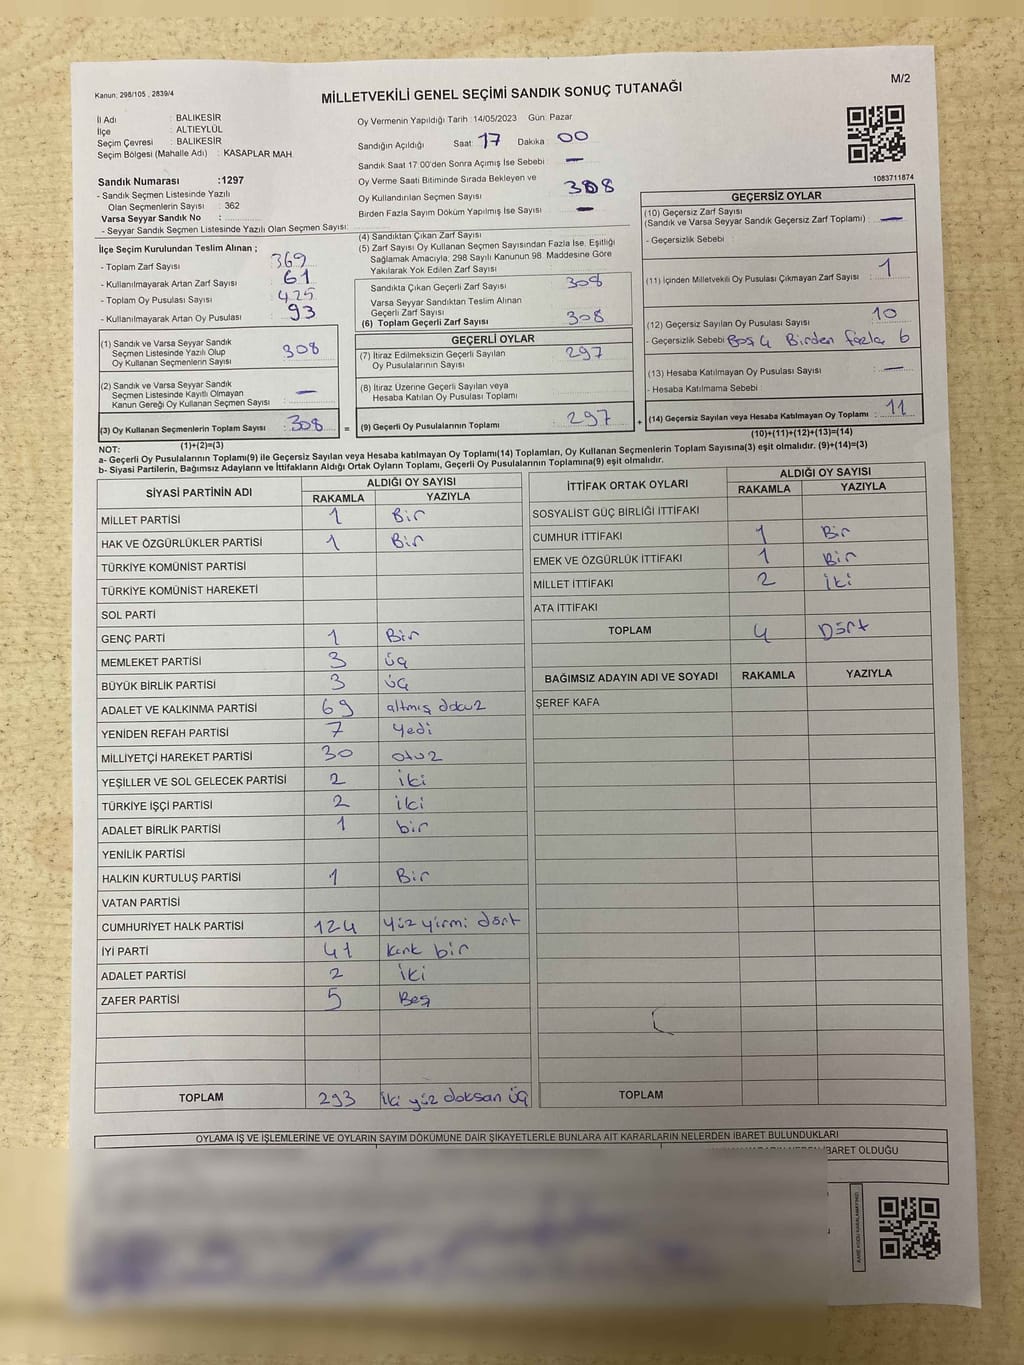 Kanun: 298/105 , 2839/4
MİLLETVEKİLİ GENEL SEÇİMİ SANDIK SONUÇ TUTANAĞI
M/2
İl Adı : BALIKESİR
İlçe : ALTIEYLÜL
Seçim Çevresi : BALIKESİR
Seçim Bölgesi (Mahalle Adı) : KASAPLAR MAH
Oy Vermenin Yapıldığı Tarih :14/05/2023 Gün: Pazar
Sandığın Açıldığı Saat: 17 Dakika: 00
Sandık Saat 17:00'den Sonra Açımış İse Sebebi : —
Oy Verme Saati Bitiminde Sırada Bekleyen ve
Oy Kullandırılan Seçmen Sayısı : 308
Birden Fazla Sayım Döküm Yapılmış İse Sayısı : —
1083711874
Sandık Numarası :1297
- Sandık Seçmen Listesinde Yazılı
Olan Seçmenlerin Sayısı : 362
Varsa Seyyar Sandık No :
- Seyyar Sandık Seçmen Listesinde Yazılı Olan Seçmen Sayısı:
İlçe Seçim Kurulundan Teslim Alınan ;
- Toplam Zarf Sayısı : 369
- Kullanılmayarak Artan Zarf Sayısı : 61
- Toplam Oy Pusulası Sayısı : 425
- Kullanılmayarak Artan Oy Pusulası : 93
(1) Sandık ve Varsa Seyyar Sandık
Seçmen Listesinde Yazılı Olup
Oy Kullanan Seçmenlerin Sayısı : 308
(2) Sandık ve Varsa Seyyar Sandık
Seçmen Listesinde Kayıtlı Olmayan
Kanun Gereği Oy Kullanan Seçmen Sayısı : —
(3) Oy Kullanan Seçmenlerin Toplam Sayısı : 308
(1)+(2)=(3)
(4) Sandıktan Çıkan Zarf Sayısı
(5) Zarf Sayısı Oy Kullanan Seçmen Sayısından Fazla İse, Eşitliği
Sağlamak Amacıyla, 298 Sayılı Kanunun 98. Maddesine Göre
Yakılarak Yok Edilen Zarf Sayısı
Sandıkta Çıkan Geçerli Zarf Sayısı : 308
Varsa Seyyar Sandıktan Teslim Alınan
Geçerli Zarf Sayısı :
(6) Toplam Geçerli Zarf Sayısı : 308
GEÇERLİ OYLAR
(7) İtiraz Edilmeksizin Geçerli Sayılan
Oy Pusulalarının Sayısı : 297
(8) İtiraz Üzerine Geçerli Sayılan veya
Hesaba Katılan Oy Pusulası Toplamı :
= (9) Geçerli Oy Pusulalarının Toplamı : 297
GEÇERSİZ OYLAR
(10) Geçersiz Zarf Sayısı
(Sandık ve Varsa Seyyar Sandık Geçersiz Zarf Toplamı) : —
- Geçersizlik Sebebi :
(11) İçinden Milletvekili Oy Pusulası Çıkmayan Zarf Sayısı : 1
(12) Geçersiz Sayılan Oy Pusulası Sayısı : 10
- Geçersizlik Sebebi : Boş 4 Birden fazla 6
(13) Hesaba Katılmayan Oy Pusulası Sayısı : —
- Hesaba Katılmama Sebebi :
+ (14) Geçersiz Sayılan veya Hesaba Katılmayan Oy Toplamı : 11
(10)+(11)+(12)+(13)=(14)
NOT:
a- Geçerli Oy Pusulalarının Toplamı(9) ile Geçersiz Sayılan veya Hesaba katılmayan Oy Toplamı(14) Toplamları, Oy Kullanan Seçmenlerin Toplam Sayısına(3) eşit olmalıdır. (9)+(14)=(3)
b- Siyasi Partilerin, Bağımsız Adayların ve İttifakların Aldığı Ortak Oyların Toplamı, Geçerli Oy Pusulalarının Toplamına(9) eşit olmalıdır.
SİYASİ PARTİNİN ADI ALDIĞI OY SAYISI
RAKAMLA YAZIYLA
MİLLET PARTİSİ 1 Bir
HAK VE ÖZGÜRLÜKLER PARTİSİ 1 Bir
TÜRKİYE KOMÜNİST PARTİSİ
TÜRKİYE KOMÜNİST HAREKETİ
SOL PARTİ
GENÇ PARTİ 1 Bir
MEMLEKET PARTİSİ 3 üç
BÜYÜK BİRLİK PARTİSİ 3 üç
ADALET VE KALKINMA PARTİSİ 69 altmış dokuz
YENİDEN REFAH PARTİSİ 7 Yedi
MİLLİYETÇİ HAREKET PARTİSİ 30 otuz
YEŞİLLER VE SOL GELECEK PARTİSİ 2 iki
TÜRKİYE İŞÇİ PARTİSİ 2 iki
ADALET BİRLİK PARTİSİ 1 bir
YENİLİK PARTİSİ
HALKIN KURTULUŞ PARTİSİ 1 Bir
VATAN PARTİSİ
CUMHURİYET HALK PARTİSİ 124 Yüz yirmi dört
İYİ PARTİ 41 kırk bir
ADALET PARTİSİ 2 iki
ZAFER PARTİSİ 5 Beş
TOPLAM 293 iki yüz doksan üç
İTTİFAK ORTAK OYLARI ALDIĞI OY SAYISI
RAKAMLA YAZIYLA
SOSYALİST GÜÇ BİRLİĞİ İTTİFAKI
CUMHUR İTTİFAKI 1 Bir
EMEK VE ÖZGÜRLÜK İTTİFAKI 1 Bir
MİLLET İTTİFAKI 2 iki
ATA İTTİFAKI
TOPLAM 4 Dört
BAĞIMSIZ ADAYIN ADI VE SOYADI RAKAMLA YAZIYLA
ŞEREF KAFA
TOPLAM
OYLAMA İŞ VE İŞLEMLERİNE VE OYLARIN SAYIM DÖKÜMÜNE DAİR ŞİKAYETLERLE BUNLARA AİT KARARLARIN NELERDEN İBARET BULUNDUKLARI
İBARET OLDUĞU